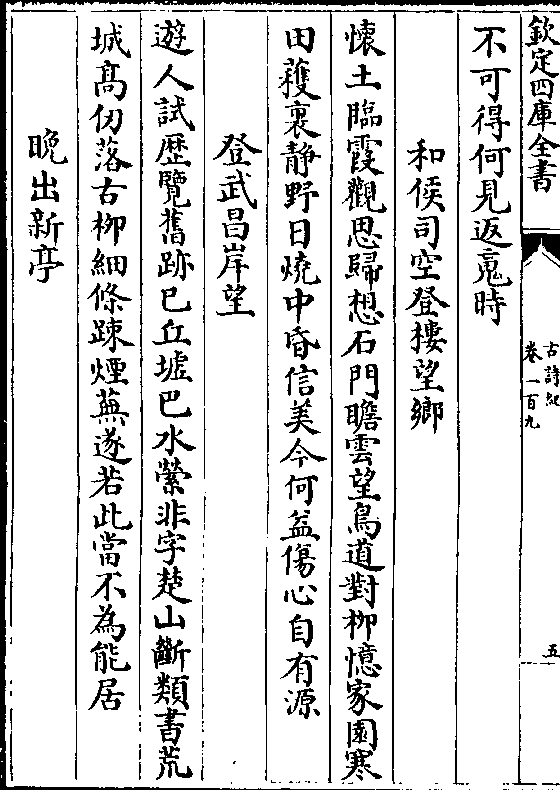 欽定四庫全書
古詩紀
卷一百九
五
不可得何見返䰟時
和侯司空登樓望鄉
懷土臨霞觀思歸想石門瞻雲望鳥道對柳憶家園寒
田穫裏静野日燒中昏信美今何益傷心自有源
登武昌岸望
遊人試歴覽舊跡已丘墟巴水縈非字楚山斷類書荒
城高仞落古柳細條踈煙蕪遂若此當不為能居
晚出新亭